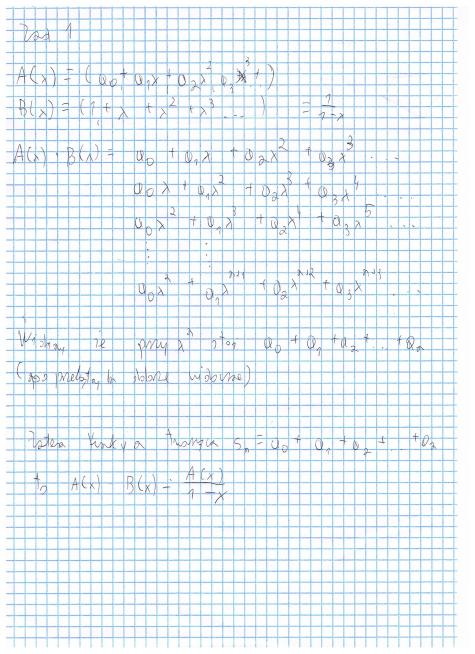 Zad 1
A(x) = (a₀ + a₁x + a₂x² a₃x³ + )
B(x) = (1 + x + x² + x³ ... ) = 1/(1-x)
A(x) · B(x) = a₀ + a₁x + a₂x² + a₃x³ ...
a₀x + a₁x² + a₂x³ + a₃x⁴ ...
a₀x² + a₁x³ + a₂x⁴ + a₃x⁵ ...
⋮ ⋮
a₀xⁿ + a₁xⁿ⁺¹ + a₂xⁿ⁺² + a₃xⁿ⁺³ ...
Widzimy że przy xⁿ stoi a₀ + a₁ + a₂ + ... + aₙ
(po dobrze widoczne)
Zatem funkcja tworząca sₙ = a₀ + a₁ + a₂ + ... + aₙ
to A(x) B(x) = A(x)/(1-x)